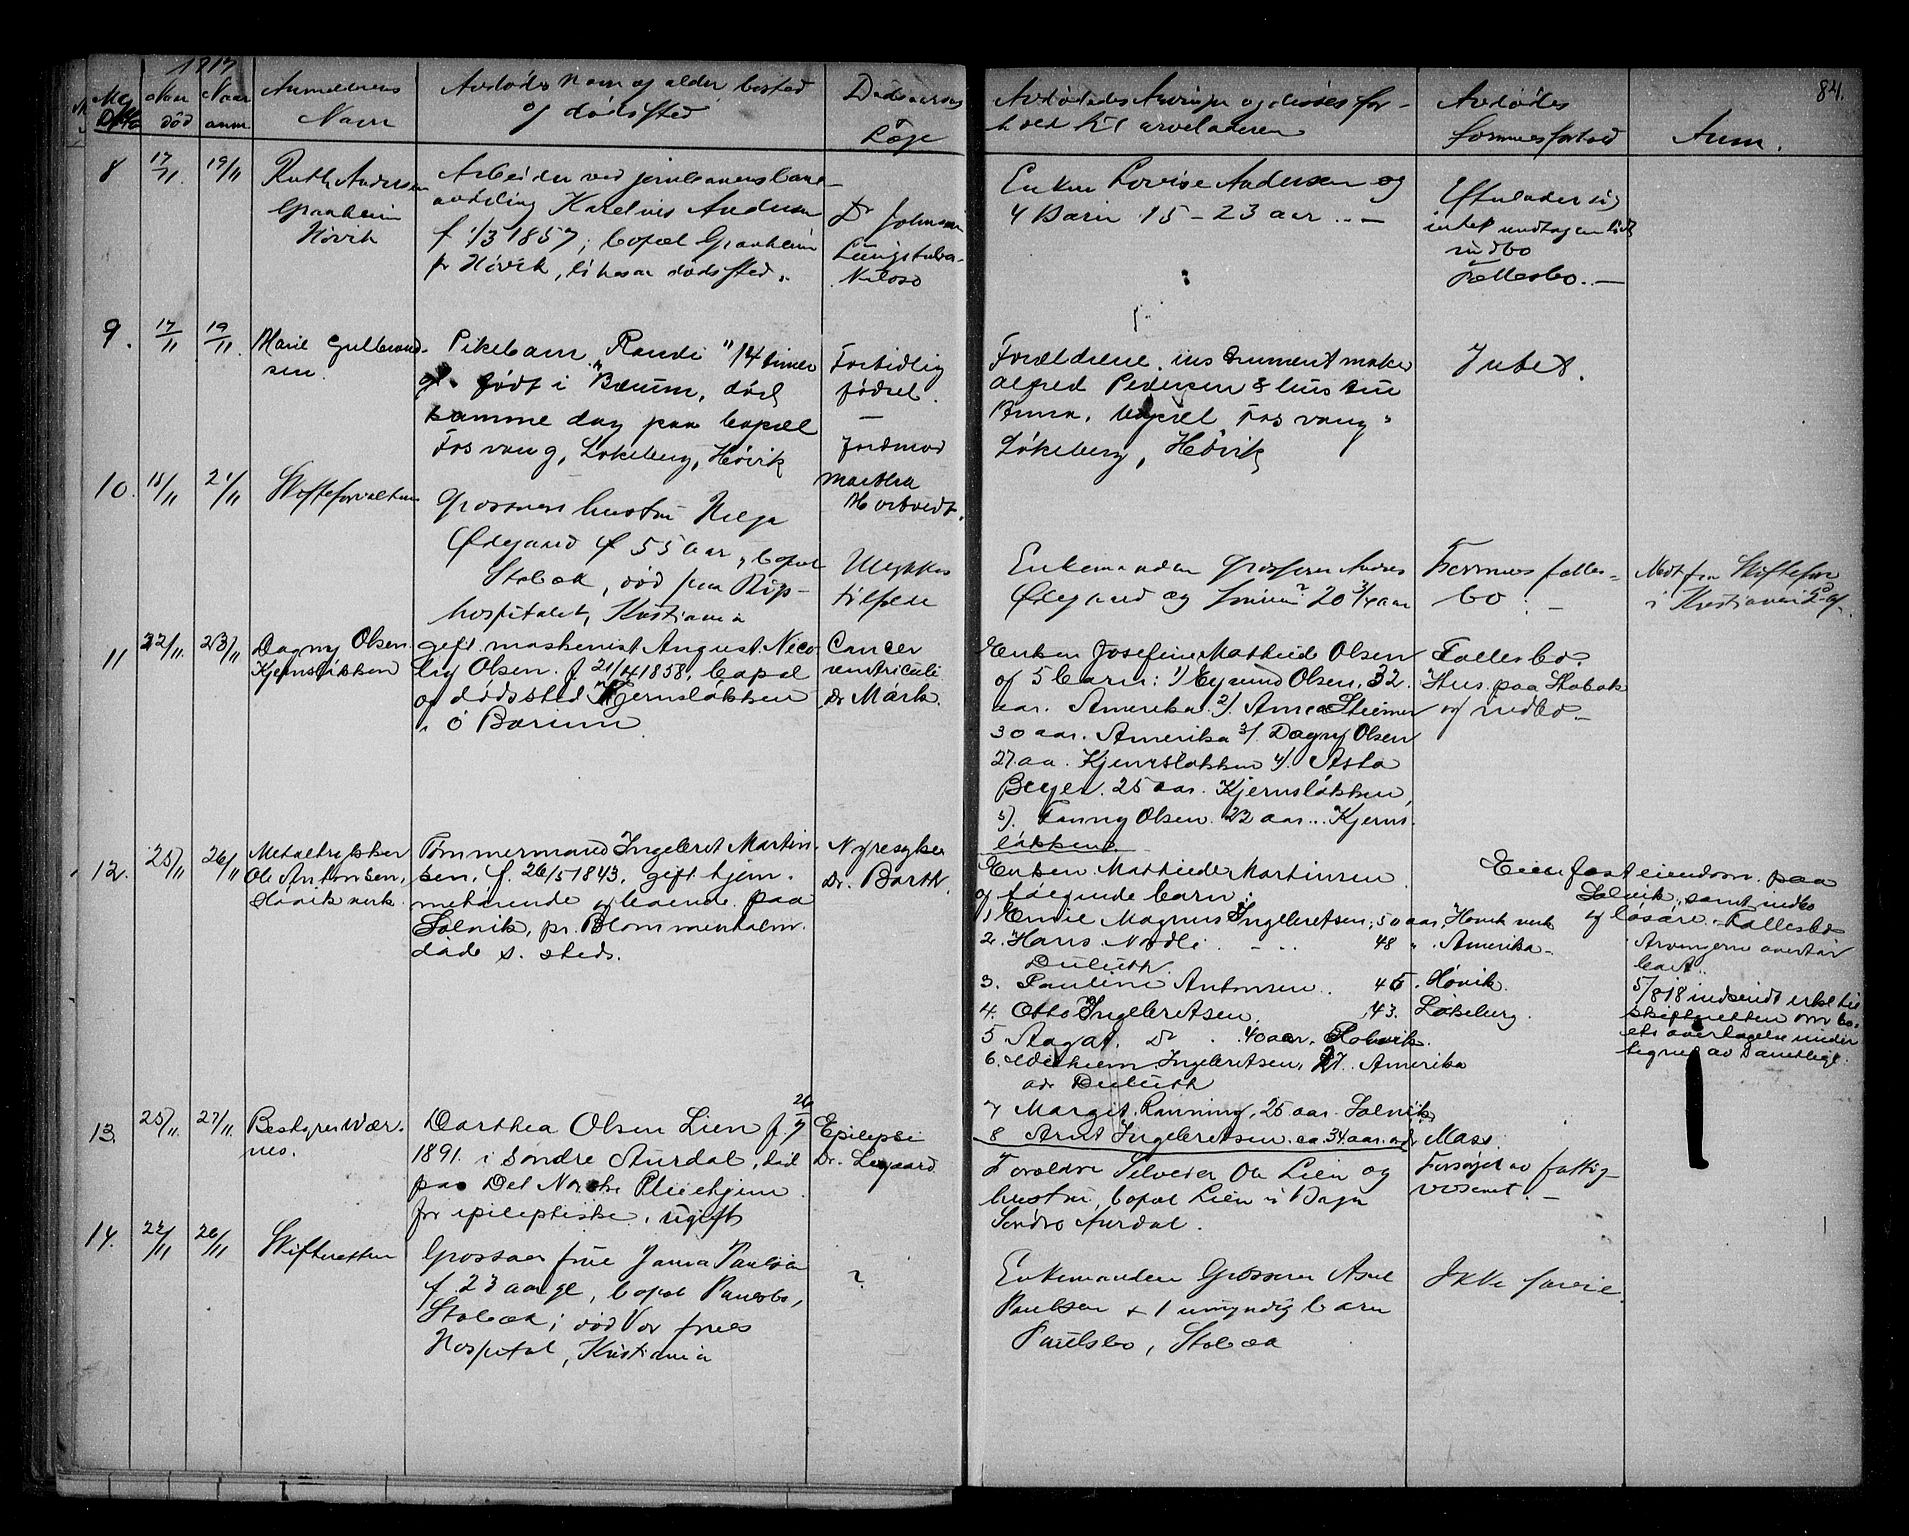 84.
1917
Naar død
Naar anm
Anmelderens Navn
Avdødes Navn og alder bosted
og dødssted
Dødsaarsag
Læge
Avdødedes Arvinger og disses for-
hold til arveladeren
Avdødes
formuesforhold
Anm.
8
17/11.
19/11
Ruth Andersen
Granheim
Høvik
Arbeider ved jernbanens bane-
avdeling Andersen
f 1/3 1857; bopæl Granheim
pr Høvik, likesaa dødssted.
Dr Johnsen
Lungetuber-
kulose
Enken Lovise Andersen og
4 Børn 15 - 23 aar
Efterlader sig
intet undtagen lidt
indbo
Fællesbo.
9.
17/11
19/11.
Marie Gulbrand-
sen.
Pikebarn "Randi" 14 timer
gl. født i Bærum, død
samme dag paa bopæl
Fosvang, Løkeberg, Høvik
Fortidlig
fødsel.
Jordmor
Martha
Hortvedt.
Forældrene. instrumentmaker
Alfred Pedersen & hustru
Anna, bopæl Fosvang
Løkeberg, Høvik
Intet.
10.
18/11
21/11
Skifteforvalteren
Grosserer hustru Helga
Ødegaard f 55 aar, bopæl
Stabæk, død paa Rigs-
hospitalet, Kristiania
Ulykkes
tilfælde
Enkemanden grosserer
Ødegaard og 20 3/4 aar
Formues fælles-
bo.
Medt fra Skifteforv
i Kristiania
11
22/11.
23/11
Dagny Olsen.
Kjernsløkken
gift maskinist August Nico-
lay Olsen. f 21/4 1858, bopæl
og dødssted Kjernsløkken
i Ø Bærum
Cancer
ventriculi
Dr Mark.
Enken Josefine Mathild Olsen
og 5 barn: 1) Eyvind Olsen, 32
aar. Amerika 2/. Anna Steimer
30 aar. Amerika 3/. Dagny Olsen
27 aa. Kjernsløkken 4/. Asta
Beyer. 25 aar. Kjernsløkken,
5). Fanny Olsen. 22 aar.. Kjerns-
løkken.
Fællesbo.
Hus paa Stabæk
og indbo
12.
25/11
26/11
Metaltrykker
Ole Antonsen,
Høvik verk.
Tømmermand Ingebret Martin-
sen, f. 26/5 1843, gift hjem-
mehørende og boende paa
Solvik, pr. Blommenholm.
døde s. steds.
Nyresyke
Dr. Barth.
Enken Mathilde Martinsen
og følgende barn:
1 Emil Magnus Ingebretsen, 50 aar, Høvik verk
2. Hans Nordli 48 " Amerika
Duluth.
3. Pauline Antonsen .. 45 . Høvik.
4. Otto Ingebretsen, 43. Løkeberg.
5 Aagot. Do . 40 aar, Solvik.
6. Wilhelm Ingebretsen, 27. Amerika
adr Duluth
7 Margit Rønning, 25 aar. Solvik
8 Arnt Ingebretsen. ca 34 aar. adr Mass
Eier fast eiendom paa
Solvik, samt indbo
og løsøre. Fællesbo
Arvingerne overtar
boet.
5/8 18 indsendt erkl. til
skifteretten om bo-
ets overtagelse under-
tegnet av samtlige.
13.
25/11.
27/11.
Bestyrer Wær-
nes.
Dorthea Olsen Lien f 26/7
1891. i Søndre Aurdal, død
paa Det Norske Pleiehjem
for epileptiske, ugift
Epilepsi
Dr. Legaard
Forældre Selveier Ole Lien og
hustru, bopæl Lien i Bagn
Søndre Aurdal.
Forsørget av fattig-
væsenet.
14.
22/11
26/11
Skifteretten
Grosserer frue Paulsen
f. 23 aar gl, bopæl Paulsbo,
Stabæk; død Vor frues
Hospital, Kristiania
?
Enkemanden Grosserer Axel
Paulsen + 1 umyndig barn
Paulsbo, Stabæk
Ikke formue.